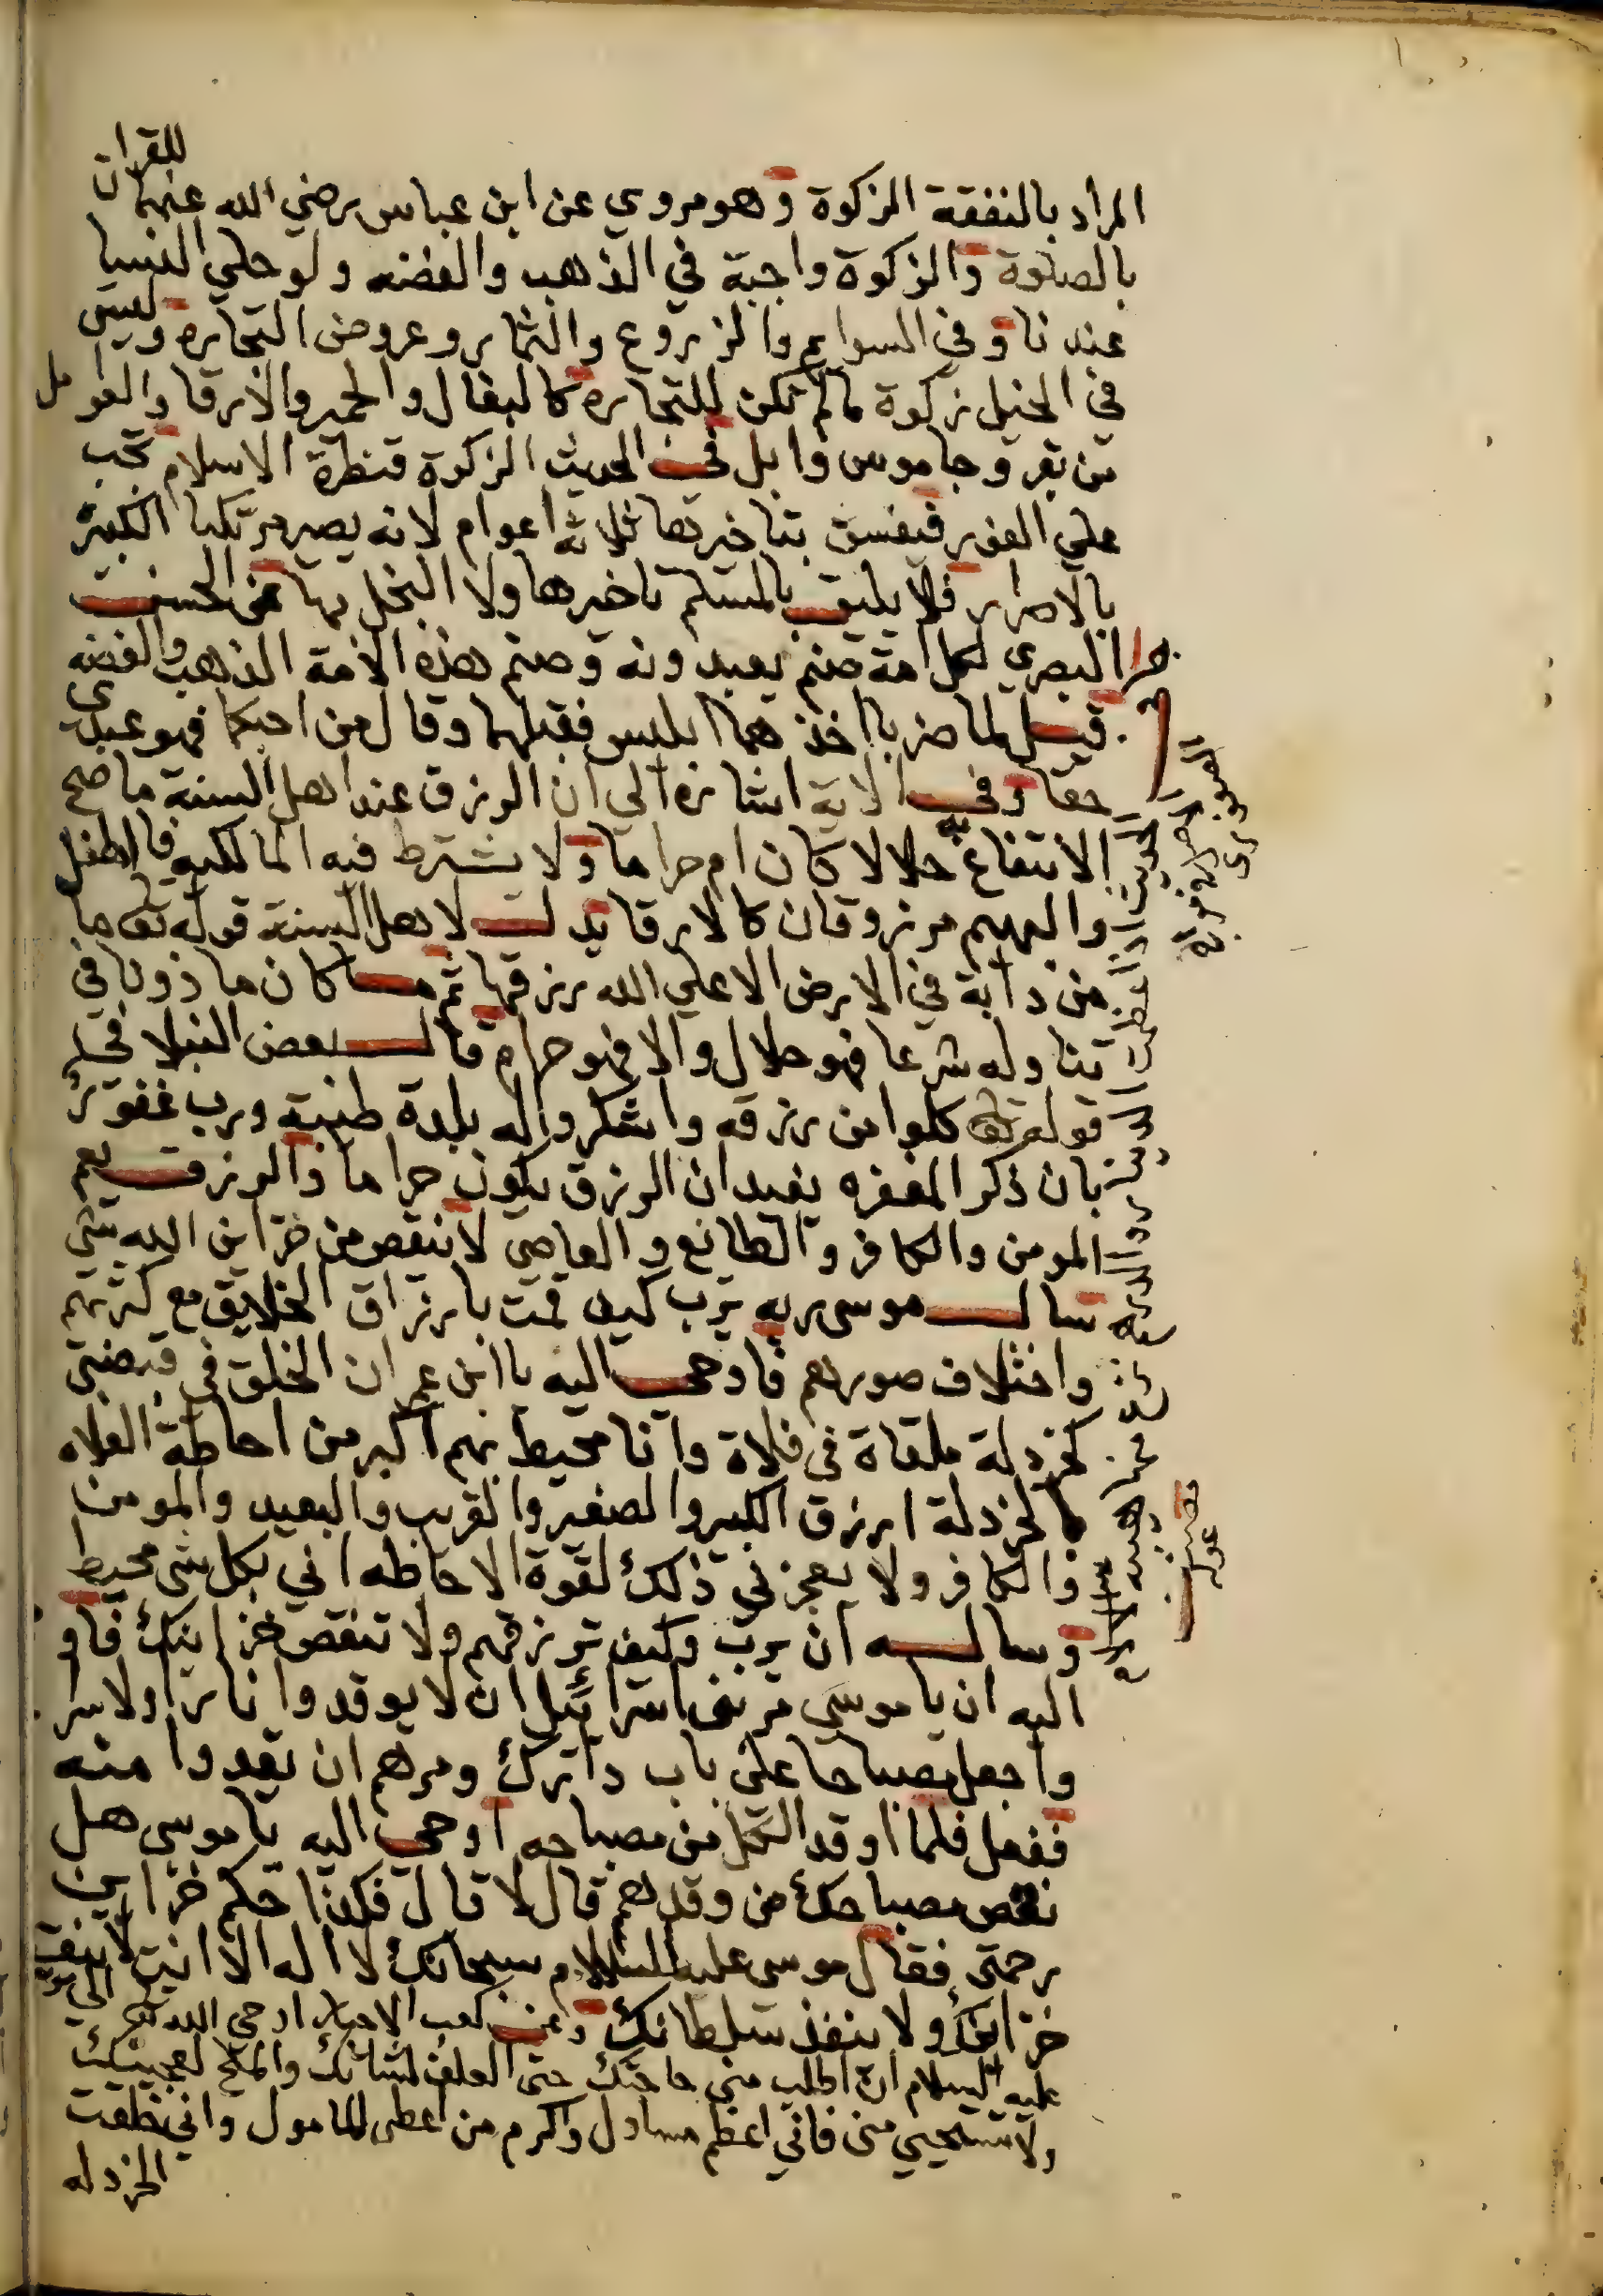 المراد بالنفقة الزكوة وهو مروي عن ابن عباس رضي الله عنهما للقران
بالصلوة والزكوة واجبة في الذهب والفضه ولو حلي النسا
عندنا وفي السوايم والزروع والثمار وعروض التجاره وليس
في الخيل زكوة ما لم تكن للتجاره كالبغال والحمير والارقا والعوامل
من بقر وجاموس وابل في الحديث الزكوة قنطرة الاسلام تجب
علي الفور فيفسق بتاخيرها ثلاثة اعوام لانه يصير مرتكبا الكبيرة
بالاصرار فلا يليق بالمسلم تاخيرها ولا البخل بها عن الحسن
البصري لكل امة صنم يعبدونه وصنم هذه الامة الذهب والفضه
قيل لما ضربا اخذهما ابليس فقبلهما وقال من احبكما فهو عبدي
حقا وفي الاية اشارة الي ان الرزق عند اهل السنة ما صح
الانتفاع به حلالا كان ام حراما ولا يشترط فيه المالكيه فالطفل
والبهيم مرزوقان كالارقا يدل لاهل السنة قوله تعا ما
من دابة في الارض الا علي الله رزقها ثم ما كان ماذونا في
تناوله شرعا فهو حلال والا فهو حرام قال بعض النبلا في
قوله تعا كلوا من رزقه واشكروا له بلدة طيبة ورب غفور
بان ذكر المغفره يفيد ان الرزق يكون حراما والرزق يعم
المومن والكافر والطائع والعاصي لا ينقص من خزاين الله شي
سال موسي ربه يرب كيف قمت بارزاق الخلايق مع كثرتهم
واختلاف صورهم فاوحي اليه يا ابن عمران الخلق في قبضتي
كخردلة ملقاة في فلاة وانا محيط بهم اكبر من احاطة الفلاه
بالخردلة ارزق الكبير والصغير والقريب والبعيد والمومن
والكافر ولا يعجزني ذلك لقوة الاحاطه اني بكل شي محيط
وساله ان يرب وكيف ترزقهم ولا تنقص خزاينك فاو
اليه ان يا موسي مر بني اسرائيل ان لا يوقدوا نارا ولا سرا
واجعل مصباحا علي باب دارك ومرهم ان يقدوا منه
ففعل فلما اوقد الكل من مصباحه اوحي اليه يا موسي هل
نقص مصباحك من وقدهم قال لا قال فكذا حكم خزاين
رحمتي فقال موسي عليه السلام سبحانك لا اله الا انت لا ينقص
خزاينك ولا ينفذ سلطانك وعن كعب الاحبار اوحي الله تعا الي موسي
عليه السلام ان اطلب مني حاجتك حتي العلف لشاتك والملح لعجينك
ولا تستحيي مني فاني اعظم مسئول واكرم من اعطي المامول واني خلقت
الخردله